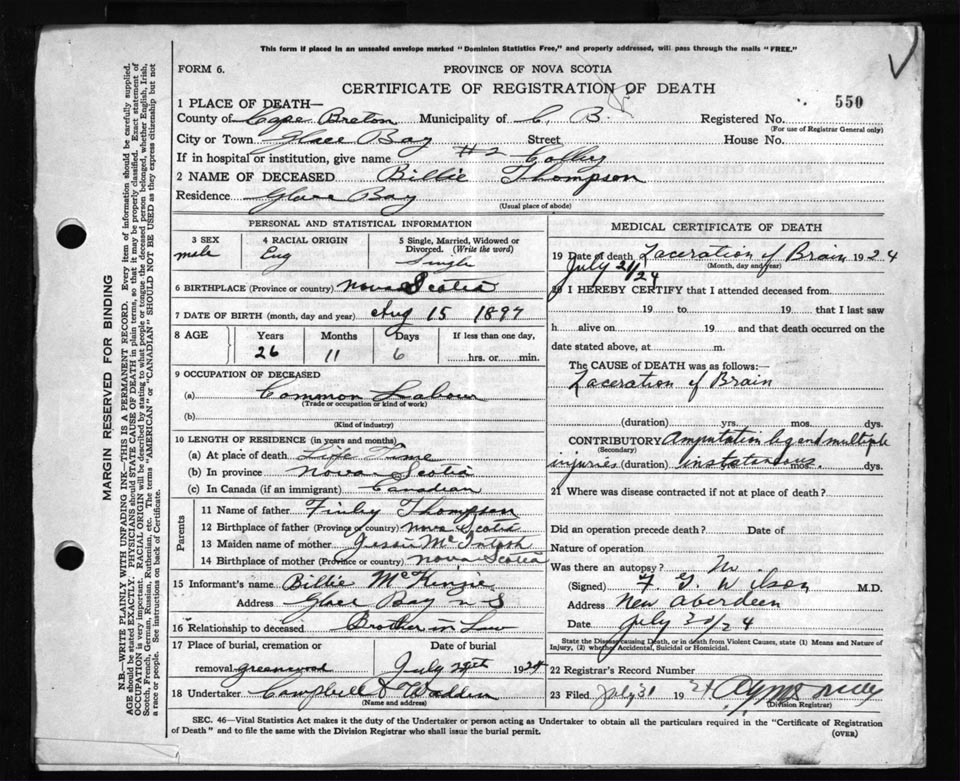 This form if placed in an unsealed envelope marked "Dominion Statistics Free," and properly addressed, will pass through the mails "FREE."
FORM 6.
PROVINCE OF NOVA SCOTIA
CERTIFICATE OF REGISTRATION OF DEATH
550
1 PLACE OF DEATH—
County of Cape Breton Municipality of C. B. Registered No.
(For use of Registrar General only)
City or Town Glace Bay Street House No.
If in hospital or institution, give name #2 Colliery
2 NAME OF DECEASED Billie Thompson
Residence Glace Bay
(Usual place of abode)
PERSONAL AND STATISTICAL INFORMATION
3 SEX 4 RACIAL ORIGIN 5 Single, Married, Widowed or Divorced. (Write the word)
male Eng Single
6 BIRTHPLACE (Province or country) Nova Scotia
7 DATE OF BIRTH (month, day and year) Aug 15 1897
8 AGE Years Months Days If less than one day,
26 11 6 hrs. or min.
9 OCCUPATION OF DECEASED
(a) Common Labour
(Trade or occupation or kind of work)
(b)
(Kind of industry)
10 LENGTH OF RESIDENCE (in years and months)
(a) At place of death Life Time
(b) In province Nova Scotia
(c) In Canada (if an immigrant) Canadian
Parents
11 Name of father Finley Thompson
12 Birthplace of father (Province or country) Nova Scotia
13 Maiden name of mother Jessie McIntosh
14 Birthplace of mother (Province or country) Nova Scotia
15 Informant's name Billie McKenzie
Address Glace Bay N S
16 Relationship to deceased Brother in Law
17 Place of burial, cremation or Date of burial
removal greenwood July 1924
18 Undertaker Campbell & Wadden
(Name and address)
MEDICAL CERTIFICATE OF DEATH
19 Date of death Laceration of Brain 1924
(Month, day and year)
July 21/24
20 I HEREBY CERTIFY that I attended deceased from
19 to 19 that I last saw
h alive on 19 and that death occurred on the
date stated above, at m.
The CAUSE OF DEATH was as follows:—
Laceration of Brain
(duration) yrs. mos. dys.
CONTRIBUTORY Amputation leg and multiple
(Secondary)
injuries (duration) mos. dys.
21 Where was disease contracted if not at place of death?
Did an operation precede death? Date of
Nature of operation
Was there an autopsy? No.
(Signed) Wilson M.D.
Address New Aberdeen
Date July
State the Disease causing Death, or in death from Violent Causes, state (1) Means and Nature of
Injury, (2) whether Accidental, Suicidal or Homicidal.
22 Registrar's Record Number
23 Filed July 31 1924
(Division Registrar)
SEC. 46—Vital Statistics Act makes it the duty of the Undertaker or person acting as Undertaker to obtain all the particulars required in the "Certificate of Registration
of Death" and to file the same with the Division Registrar who shall issue the burial permit.
(OVER)
MARGIN RESERVED FOR BINDING
N.B.—WRITE PLAINLY WITH UNFADING INK—THIS IS A PERMANENT RECORD. Every item of information should be carefully supplied.
AGE should be stated EXACTLY. PHYSICIANS should STATE CAUSE OF DEATH in plain terms, so that it may be properly classified. Exact statement of
OCCUPATION is very important. RACIAL ORIGIN will be described by stating to what people or tongue the deceased person belonged, whether English, Irish,
Scotch, French, German, Russian, Ruthenian, etc. The terms "AMERICAN" or "CANADIAN" SHOULD NOT BE USED as they express citizenship but not
a race or people. See instructions on back of Certificate.